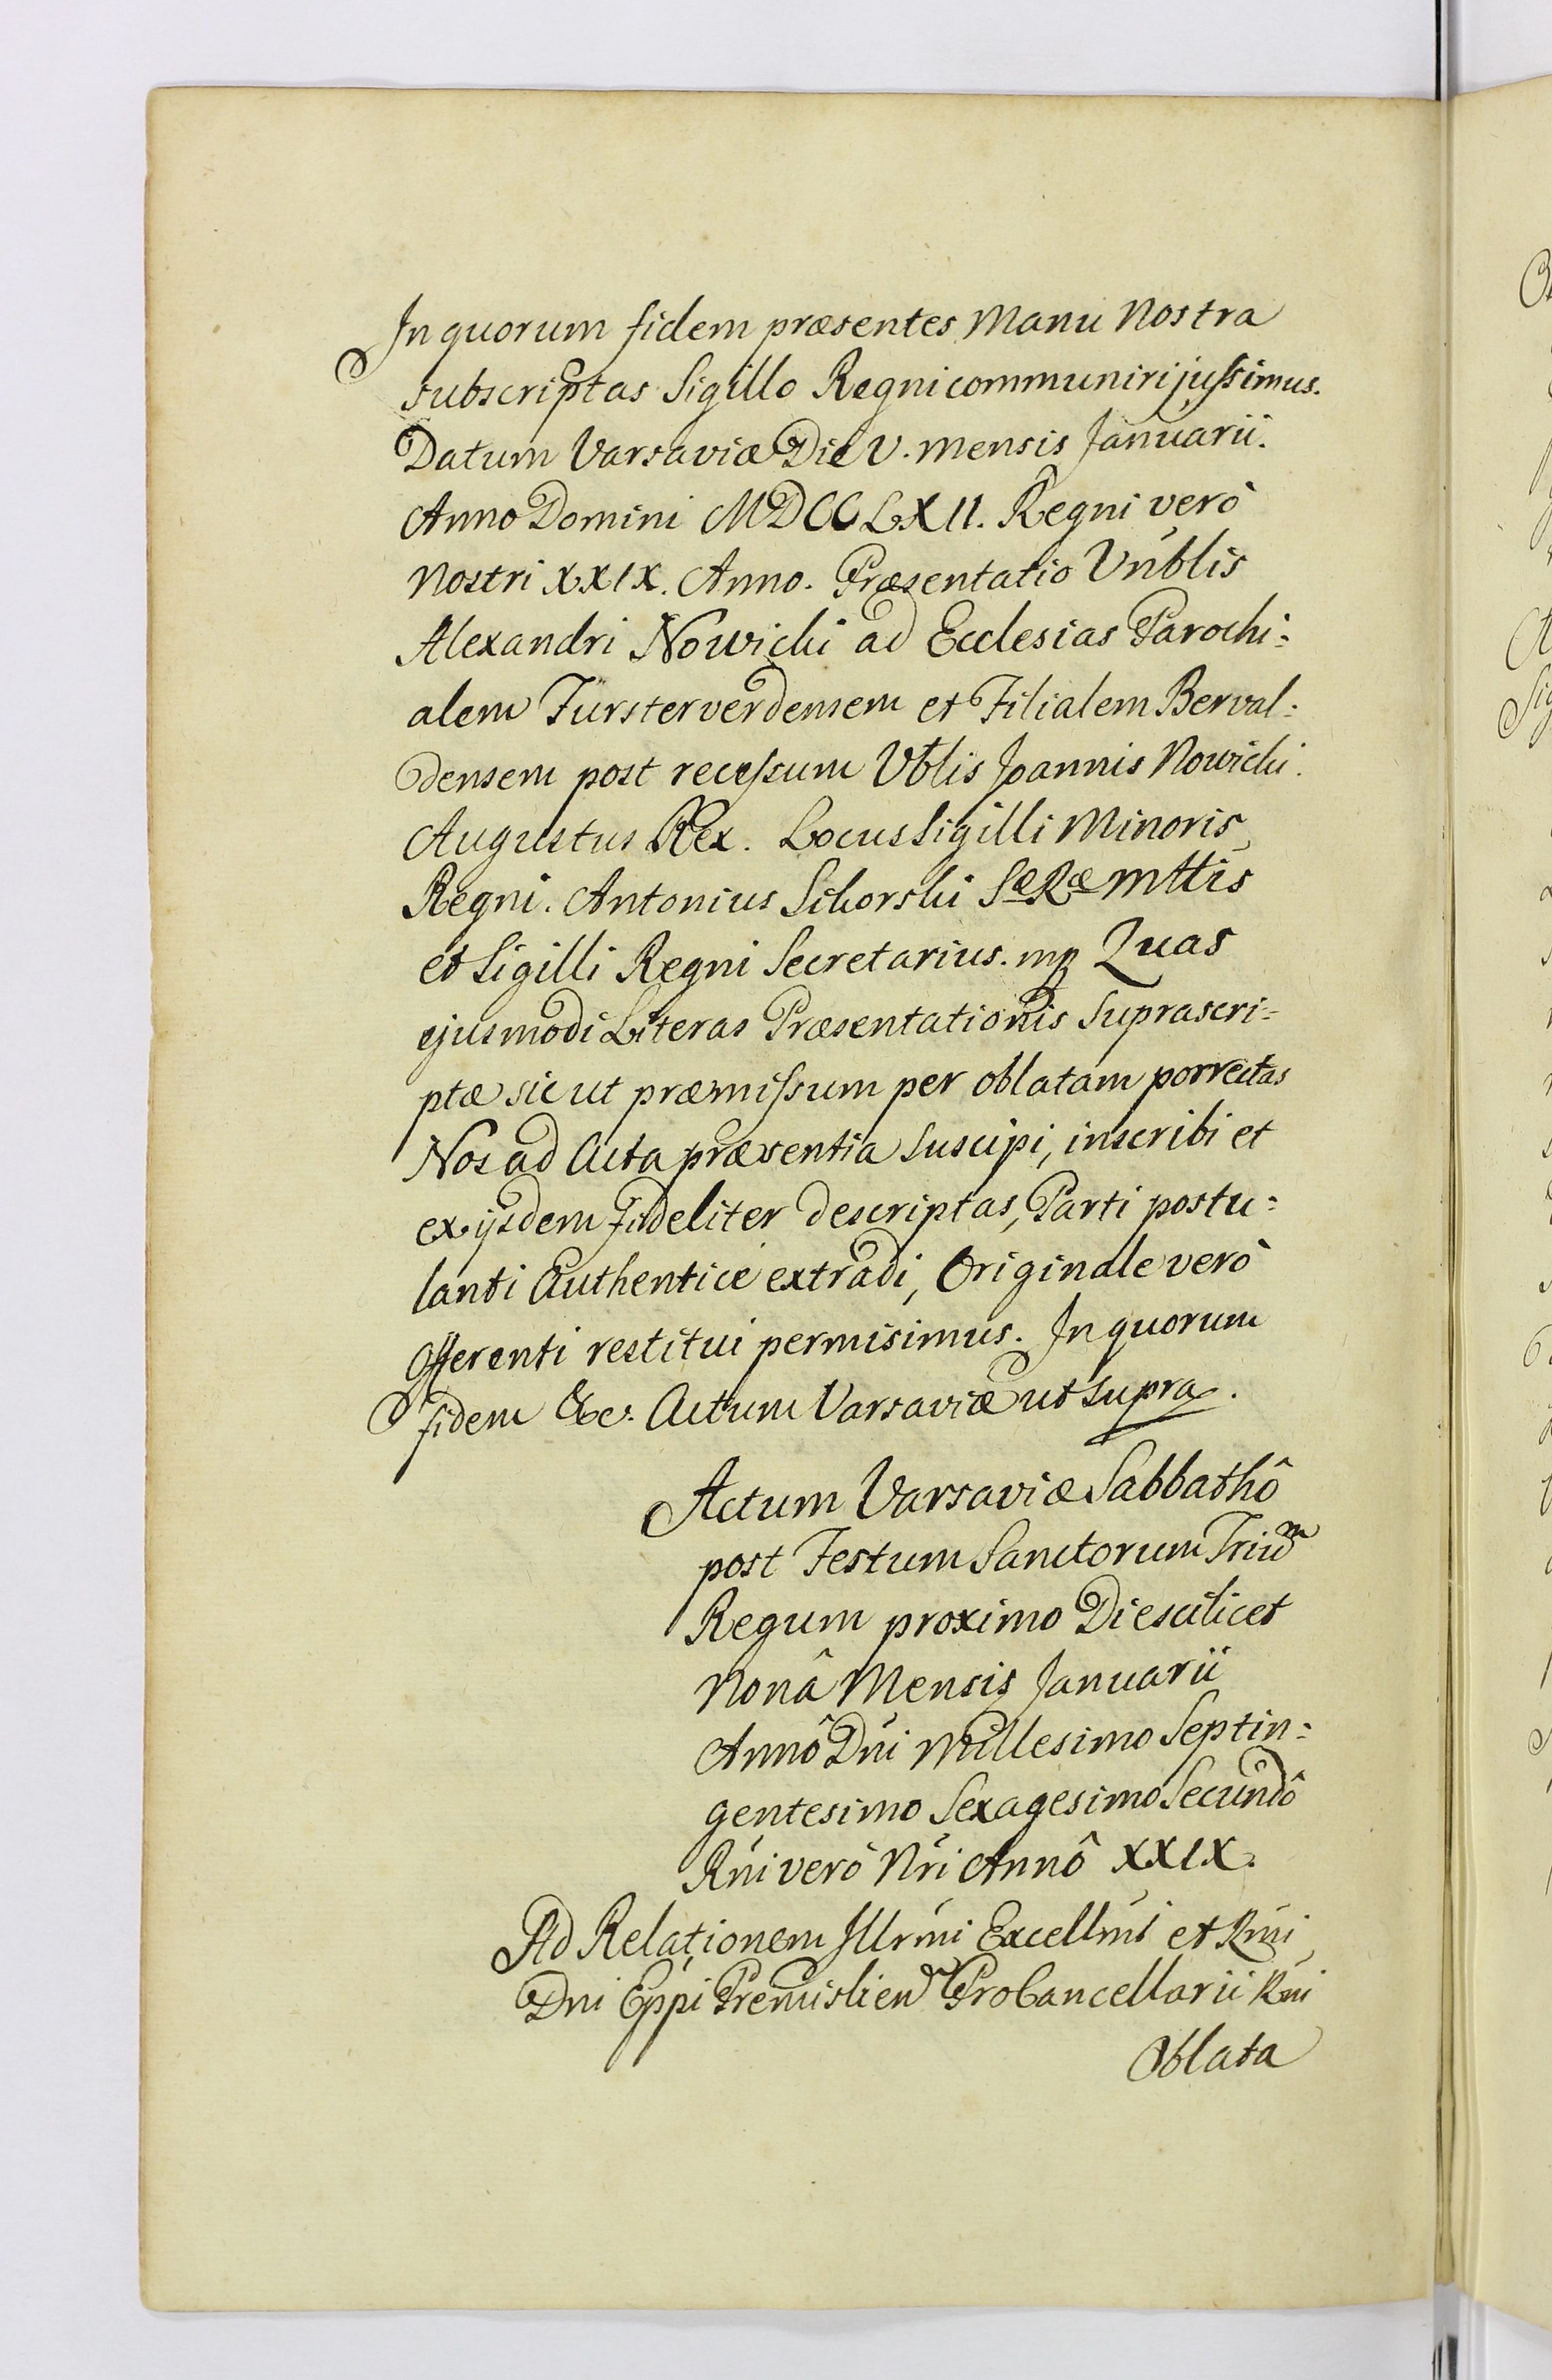 In quorum fidem præsentes Manu Nostra
subscriptas Sigillo Regni communiri jussimus.
Datum Varsaviæ Die V. mensis Januarii.
Anno Domini MDCCLXII. Regni verò
Nostri XXIX. Anno. Præsentatio Vnblis
Alexandri Nowicki ad Ecclesias Parochi=
alem Fürsterverdensem et Filialem Berval=
densem post recessum Vblis Joannis Nowicki.
Augustus Rex. Locus Sigilli Minoris
Regni. Antonius Sikorski Sæ Ræ Mttis
et Sigilli Regni Secretarius. mp Quas
ejusmodi Literas Præsentationis suprascri=
ptæ sic ut præmissum per oblatam porrectas
Nos ad Acta præsentia suscipi, inscribi et
ex ijsdem fideliter descriptas, Parti postu=
lanti Authenticè extradi, Originale verò
Offerenti restitui permisimus. In quorum
fidem &c. Actum Varsaviæ ut supra.
Actum Varsaviæ Sabbathô
post Festum Sanctorum Triũm
Regum proximo Die scilicet
Nonâ Mensis Januarii
Annô Dni Millesimo Septin=
gentesimo Sexagesimo Secundô
Rni verò Nri Annô XXIX.
Ad Relationem Illrmi Excellmi et Rmi
Dni Eppi Premislien ProCancellarii Rni
Oblata